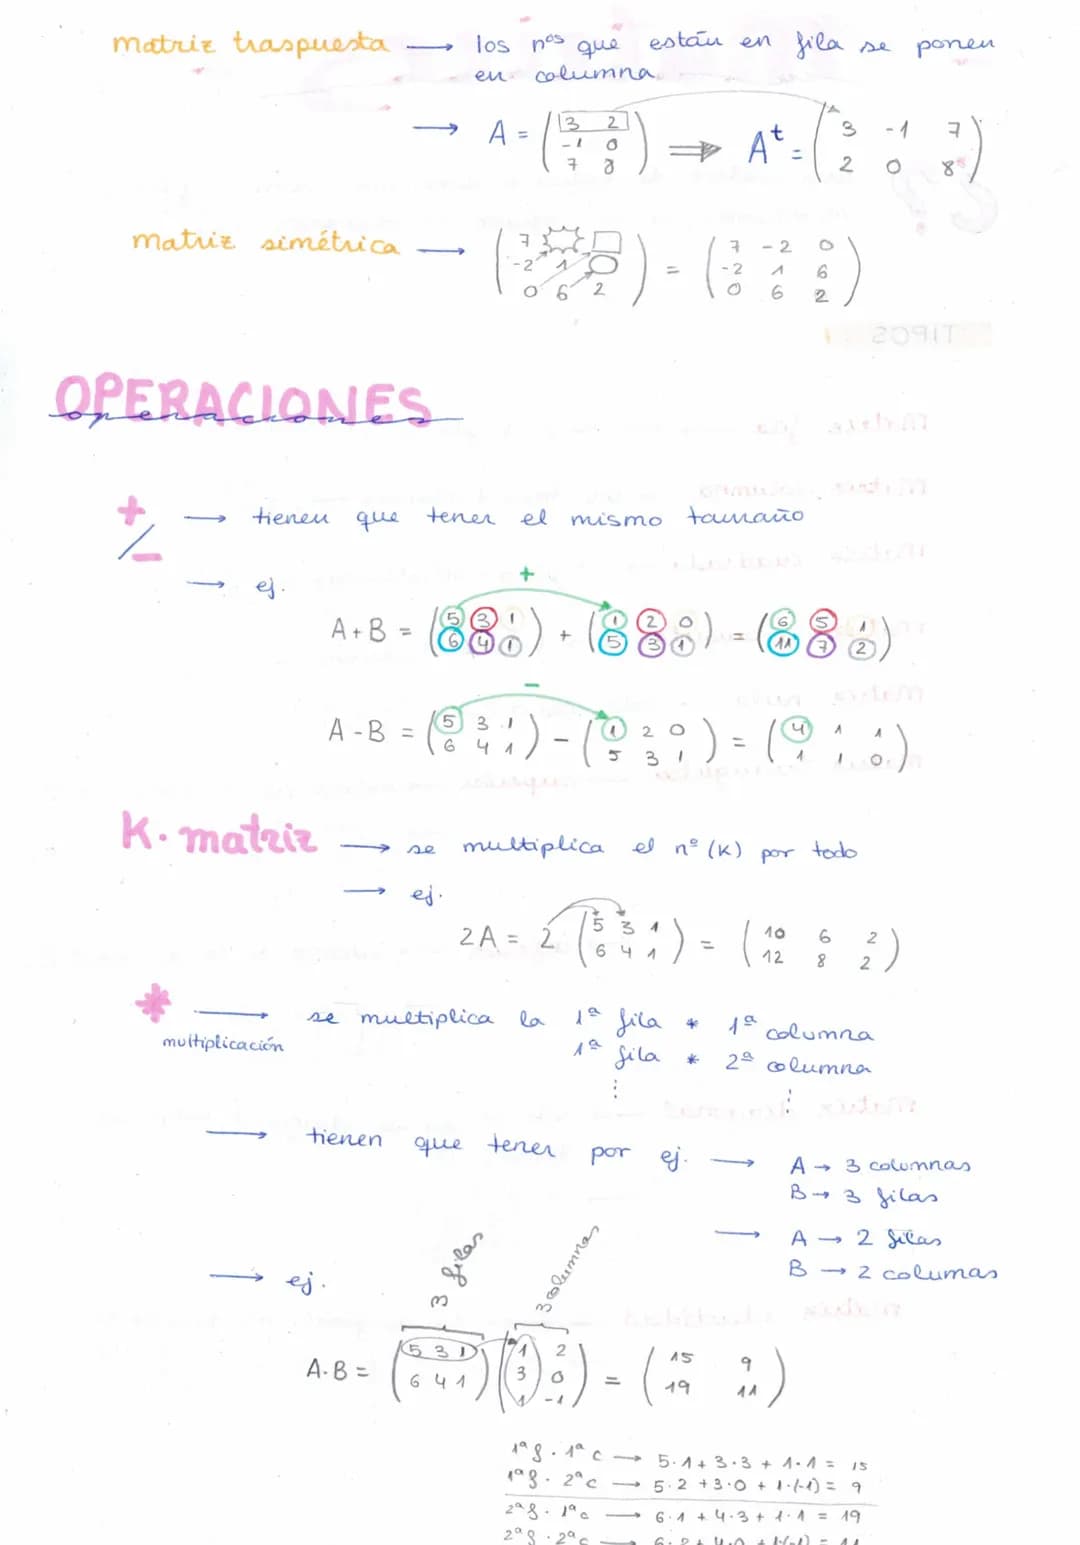 matriz traspuesta → los nos que están en fila se ponen
en columna
→ A = ( 3 2 ) ⇒ At = ( 3 -1 7 )
( -1 0 ) ( 2 0 8 )
( 7 8 )
matriz simétrica → ( 7 ) = ( 7 -2 0 )
( -2 1 ) ( -2 1 6 )
( 0 6 2 ) ( 0 6 2 )
OPERACIONES
operaciones
+
/
- → tienen que tener el mismo tamaño
→ ej.
+
A+B = ( 5 3 1 ) + ( 1 2 0 ) = ( 6 5 1 )
( 6 4 1 ) ( 5 3 1 ) ( 11 7 2 )
-
A-B = ( 5 3 1 ) - ( 1 2 0 ) = ( 4 1 1 )
( 6 4 1 ) ( 5 3 1 ) ( 1 1 0 )
K· matriz → se multiplica el nº (K) por todo
→ ej.
2A = 2 ( 5 3 1 ) = ( 10 6 2 )
( 6 4 1 ) ( 12 8 2 )
* → se multiplica la 1ª fila * 1ª columna
multiplicación
1ª fila * 2ª columna
⋮ ⋮
→ tienen que tener por ej. → A → 3 columnas
B → 3 filas
→ A → 2 filas
B → 2 columas
→ ej.
3 filas
3 columnas
A·B = ( 5 3 1 ) ( 1 2 ) = ( 15 9 )
( 6 4 1 ) ( 3 0 ) ( 19 11 )
( 1 -1 )
1ª f · 1ª c → 5·1 + 3·3 + 1·1 = 15
1ª f · 2ª c → 5·2 + 3·0 + 1·(-1) = 9
2ª f · 1ª c → 6·1 + 4·3 + 1·1 = 19
2ª f · 2ª c → 6·2 + 4·0 + 1·(-1) = 11